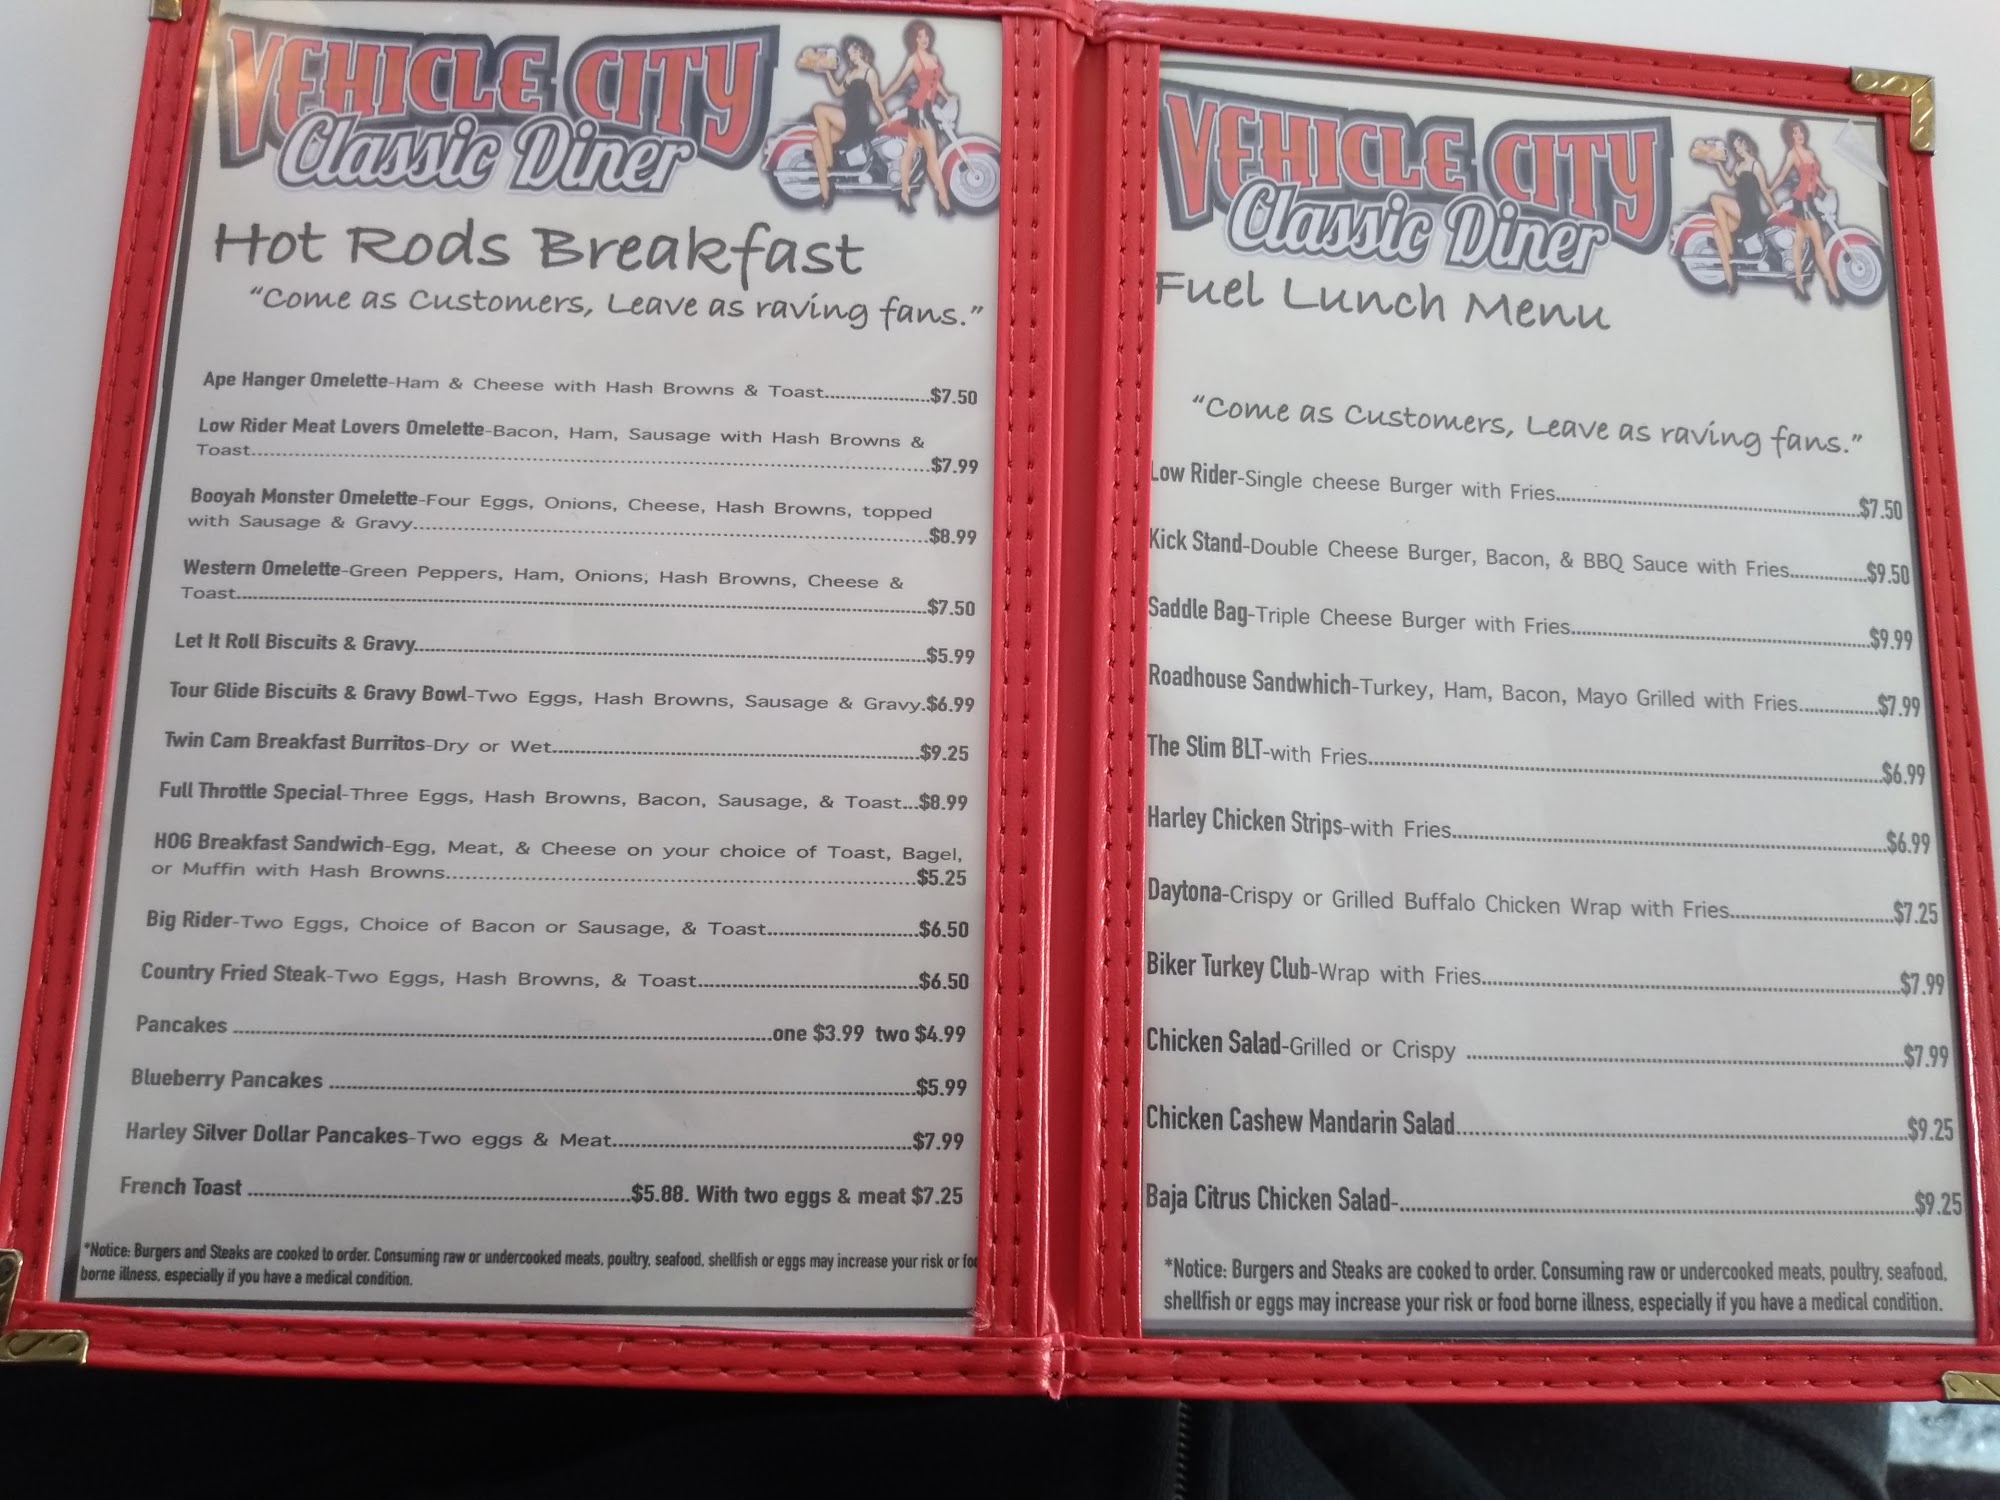 VEHICLE CITY
Classic Diner
Hot Rods Breakfast
"Come as Customers, Leave as raving fans."
Ape Hanger Omelette-Ham & Cheese with Hash Browns & Toast.....................$7.50
Low Rider Meat Lovers Omelette-Bacon, Ham, Sausage with Hash Browns &
Toast.....................$7.99
Booyah Monster Omelette-Four Eggs, Onions, Cheese, Hash Browns, topped
with Sausage & Gravy.....................$8.99
Western Omelette-Green Peppers, Ham, Onions, Hash Browns, Cheese &
Toast.....................$7.50
Let It Roll Biscuits & Gravy.....................$5.99
Tour Glide Biscuits & Gravy Bowl-Two Eggs, Hash Browns, Sausage & Gravy.$6.99
Twin Cam Breakfast Burritos-Dry or Wet.....................$9.25
Full Throttle Special-Three Eggs, Hash Browns, Bacon, Sausage, & Toast...$8.99
HOG Breakfast Sandwich-Egg, Meat, & Cheese on your choice of Toast, Bagel,
or Muffin with Hash Browns.....................$5.25
Big Rider-Two Eggs, Choice of Bacon or Sausage, & Toast.....................$6.50
Country Fried Steak-Two Eggs, Hash Browns, & Toast.....................$6.50
Pancakes .....................one $3.99 two $4.99
Blueberry Pancakes .....................$5.99
Harley Silver Dollar Pancakes-Two eggs & Meat.....................$7.99
French Toast .....................$5.88. With two eggs & meat $7.25
*Notice: Burgers and Steaks are cooked to order. Consuming raw or undercooked meats, poultry, seafood, shellfish or eggs may increase your risk or foo
borne illness, especially if you have a medical condition.
VEHICLE CITY
Classic Diner
Fuel Lunch Menu
"Come as Customers, Leave as raving fans."
Low Rider-Single cheese Burger with Fries.....................$7.50
Kick Stand-Double Cheese Burger, Bacon, & BBQ Sauce with Fries...............$9.50
Saddle Bag-Triple Cheese Burger with Fries.....................$9.99
Roadhouse Sandwhich-Turkey, Ham, Bacon, Mayo Grilled with Fries...............$7.99
The Slim BLT-with Fries.....................$6.99
Harley Chicken Strips-with Fries.....................$6.99
Daytona-Crispy or Grilled Buffalo Chicken Wrap with Fries.....................$7.25
Biker Turkey Club-Wrap with Fries.....................$7.99
Chicken Salad-Grilled or Crispy .....................$7.99
Chicken Cashew Mandarin Salad.....................$9.25
Baja Citrus Chicken Salad-.....................$9.25
*Notice: Burgers and Steaks are cooked to order. Consuming raw or undercooked meats, poultry, seafood,
shellfish or eggs may increase your risk or food borne illness, especially if you have a medical condition.